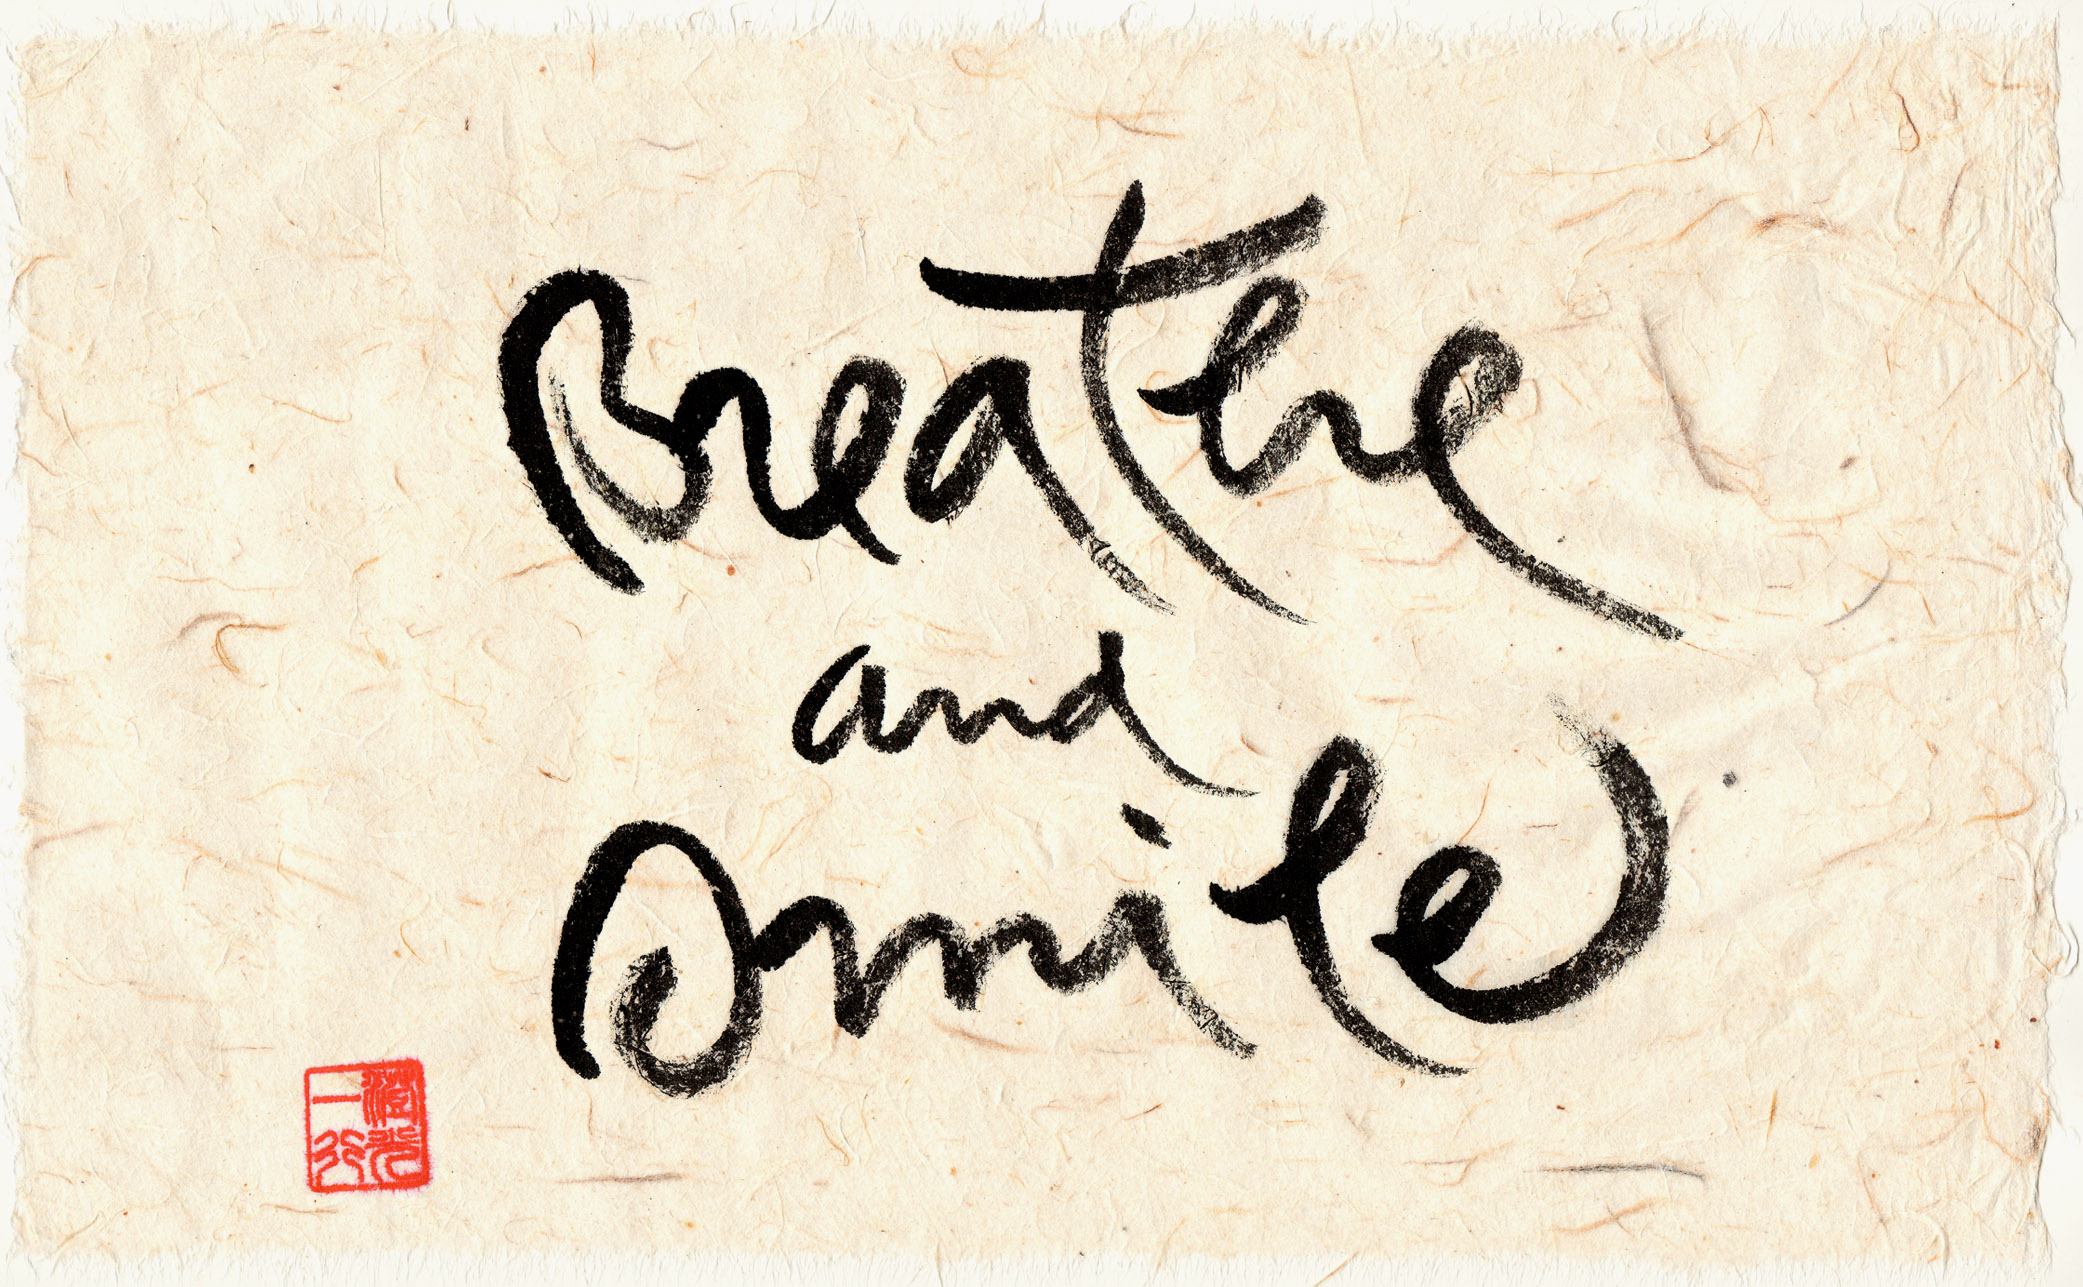 Breathe
and
Smile
澄光
一行